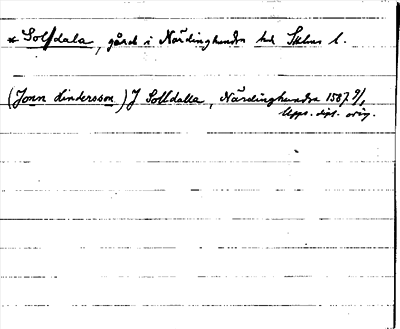 * Solldala, gård i Närdinghundra hd Sthlms l.
(Jonn Lindersson) J Solldalla, Närdinghundra 1587 9/1
Upps. dipl. orig.